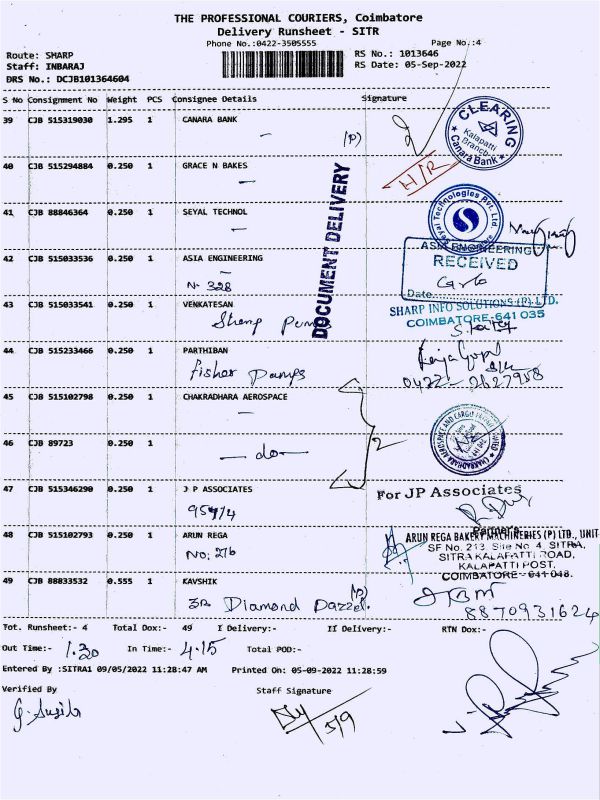 THE PROFESSIONAL COURIERS, Coimbatore
Delivery Runsheet - SITR
Phone No.:0422-3505555
Page No.:4
Route: SHARP
RS No.: 1013646
Staff: INBARAJ
RS Date: 05-Sep-2022
DRS No.: DCJB101364604
S No Consignment No Weight PCS Consignee Details Signature
39 CJB 515319030 1.295 1 CANARA BANK
(P)
CLEARING
Kalapatti Branch
Canara Bank
40 CJB 515294884 0.250 1 GRACE N BAKES
H/R
DOCUMENT DELIVERY
41 CJB 88846364 0.250 1 SEYAL TECHNOL
Seyal Technologies Pvt. Ltd.
42 CJB 515033536 0.250 1 ASIA ENGINEERING
N- 328
ASIA ENGINEERING
RECEIVED
Date
43 CJB 515033541 0.250 1 VENKATESAN
Sharp Pumps
SHARP INFO SOLUTIONS (P) LTD.
COIMBATORE-641 035
44 CJB 515233466 0.250 1 PARTHIBAN
fisher Pumps
Rajagopal
0422-2627958
45 CJB 515102798 0.250 1 CHAKRADHARA AEROSPACE
2
CHAKRADHARA AEROSPACE AND CARGO PRIVATE LIMITED
46 CJB 89723 0.250 1
— do —
47 CJB 515346290 0.250 1 J P ASSOCIATES
957/4
For JP Associates
Partner's
48 CJB 515102793 0.250 1 ARUN REGA
NO: 276
ARUN REGA BAKERY MACHINERIES (P) LTD., UNIT-
SF No. 213, Site No. 4, SITRA,
SITRA KALAPATTI ROAD,
KALAPATTI POST,
COIMBATORE - 641 048.
49 CJB 88833532 0.555 1 KAVSHIK
(P)
3R Diamond Dazzel.
8870931624
Tot. Runsheet:- 4 Total Dox:- 49 I Delivery:- II Delivery:- RTN Dox:-
Out Time:- 1.30 In Time:- 4.15 Total POD:-
Entered By :SITRA1 09/05/2022 11:28:47 AM Printed On: 05-09-2022 11:28:59
Verified By Staff Signature
G. Susila
5/9